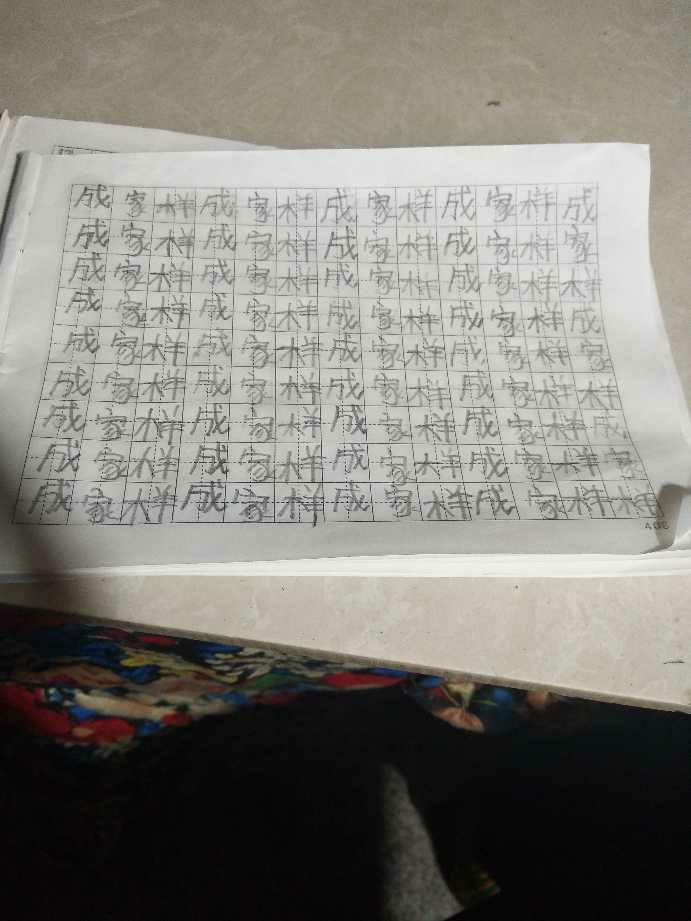 成家样成家样成家样成家样成
成家样成家样成家样成家样家
成家样成家样成家样成家样样
成家样成家样成家样成家样成
成家样成家样成家样成家样家
成家样成家样成家样成家样样
成家样成家样成家样成家样成
成家样成家样成家样成家样家
成家样成家样成家样成家样样
406